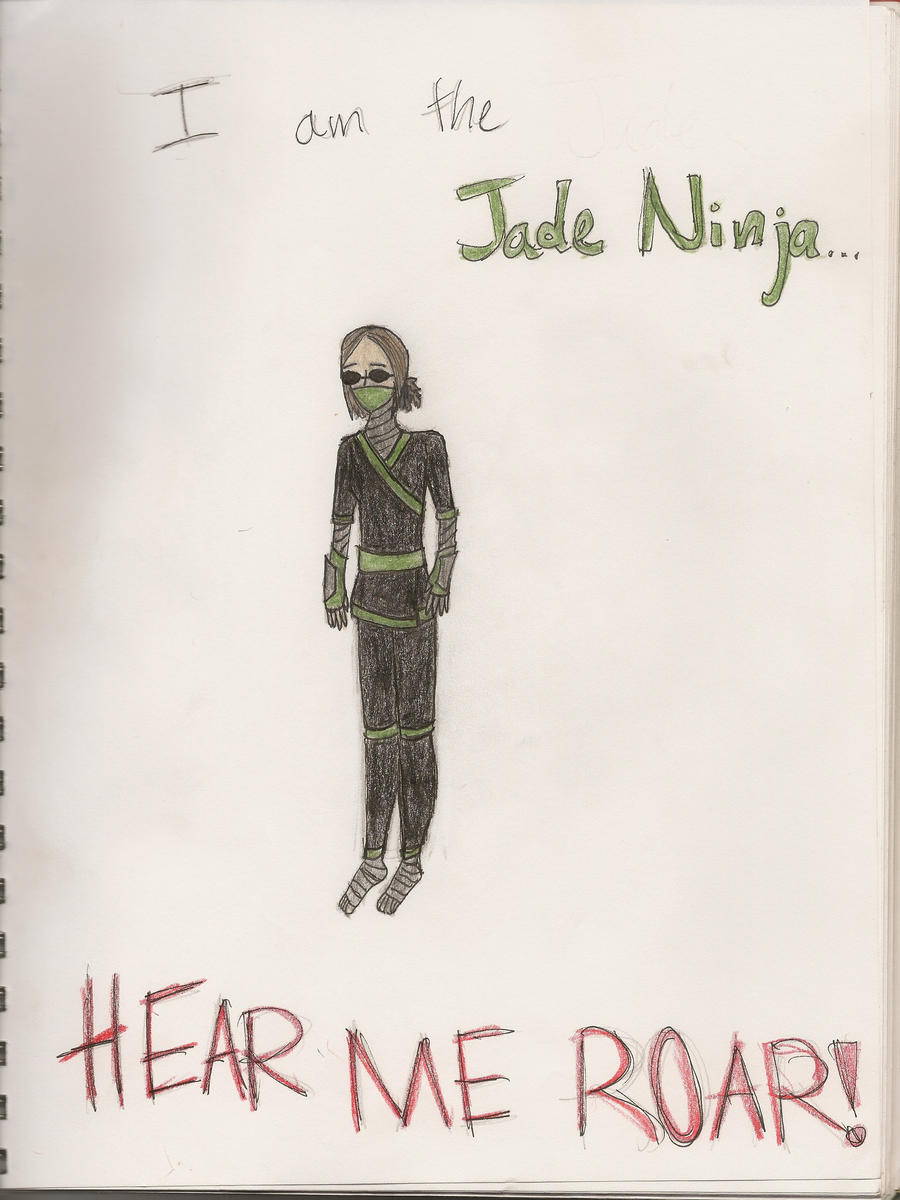 I am the
Jade Ninja...
HEAR ME ROAR!